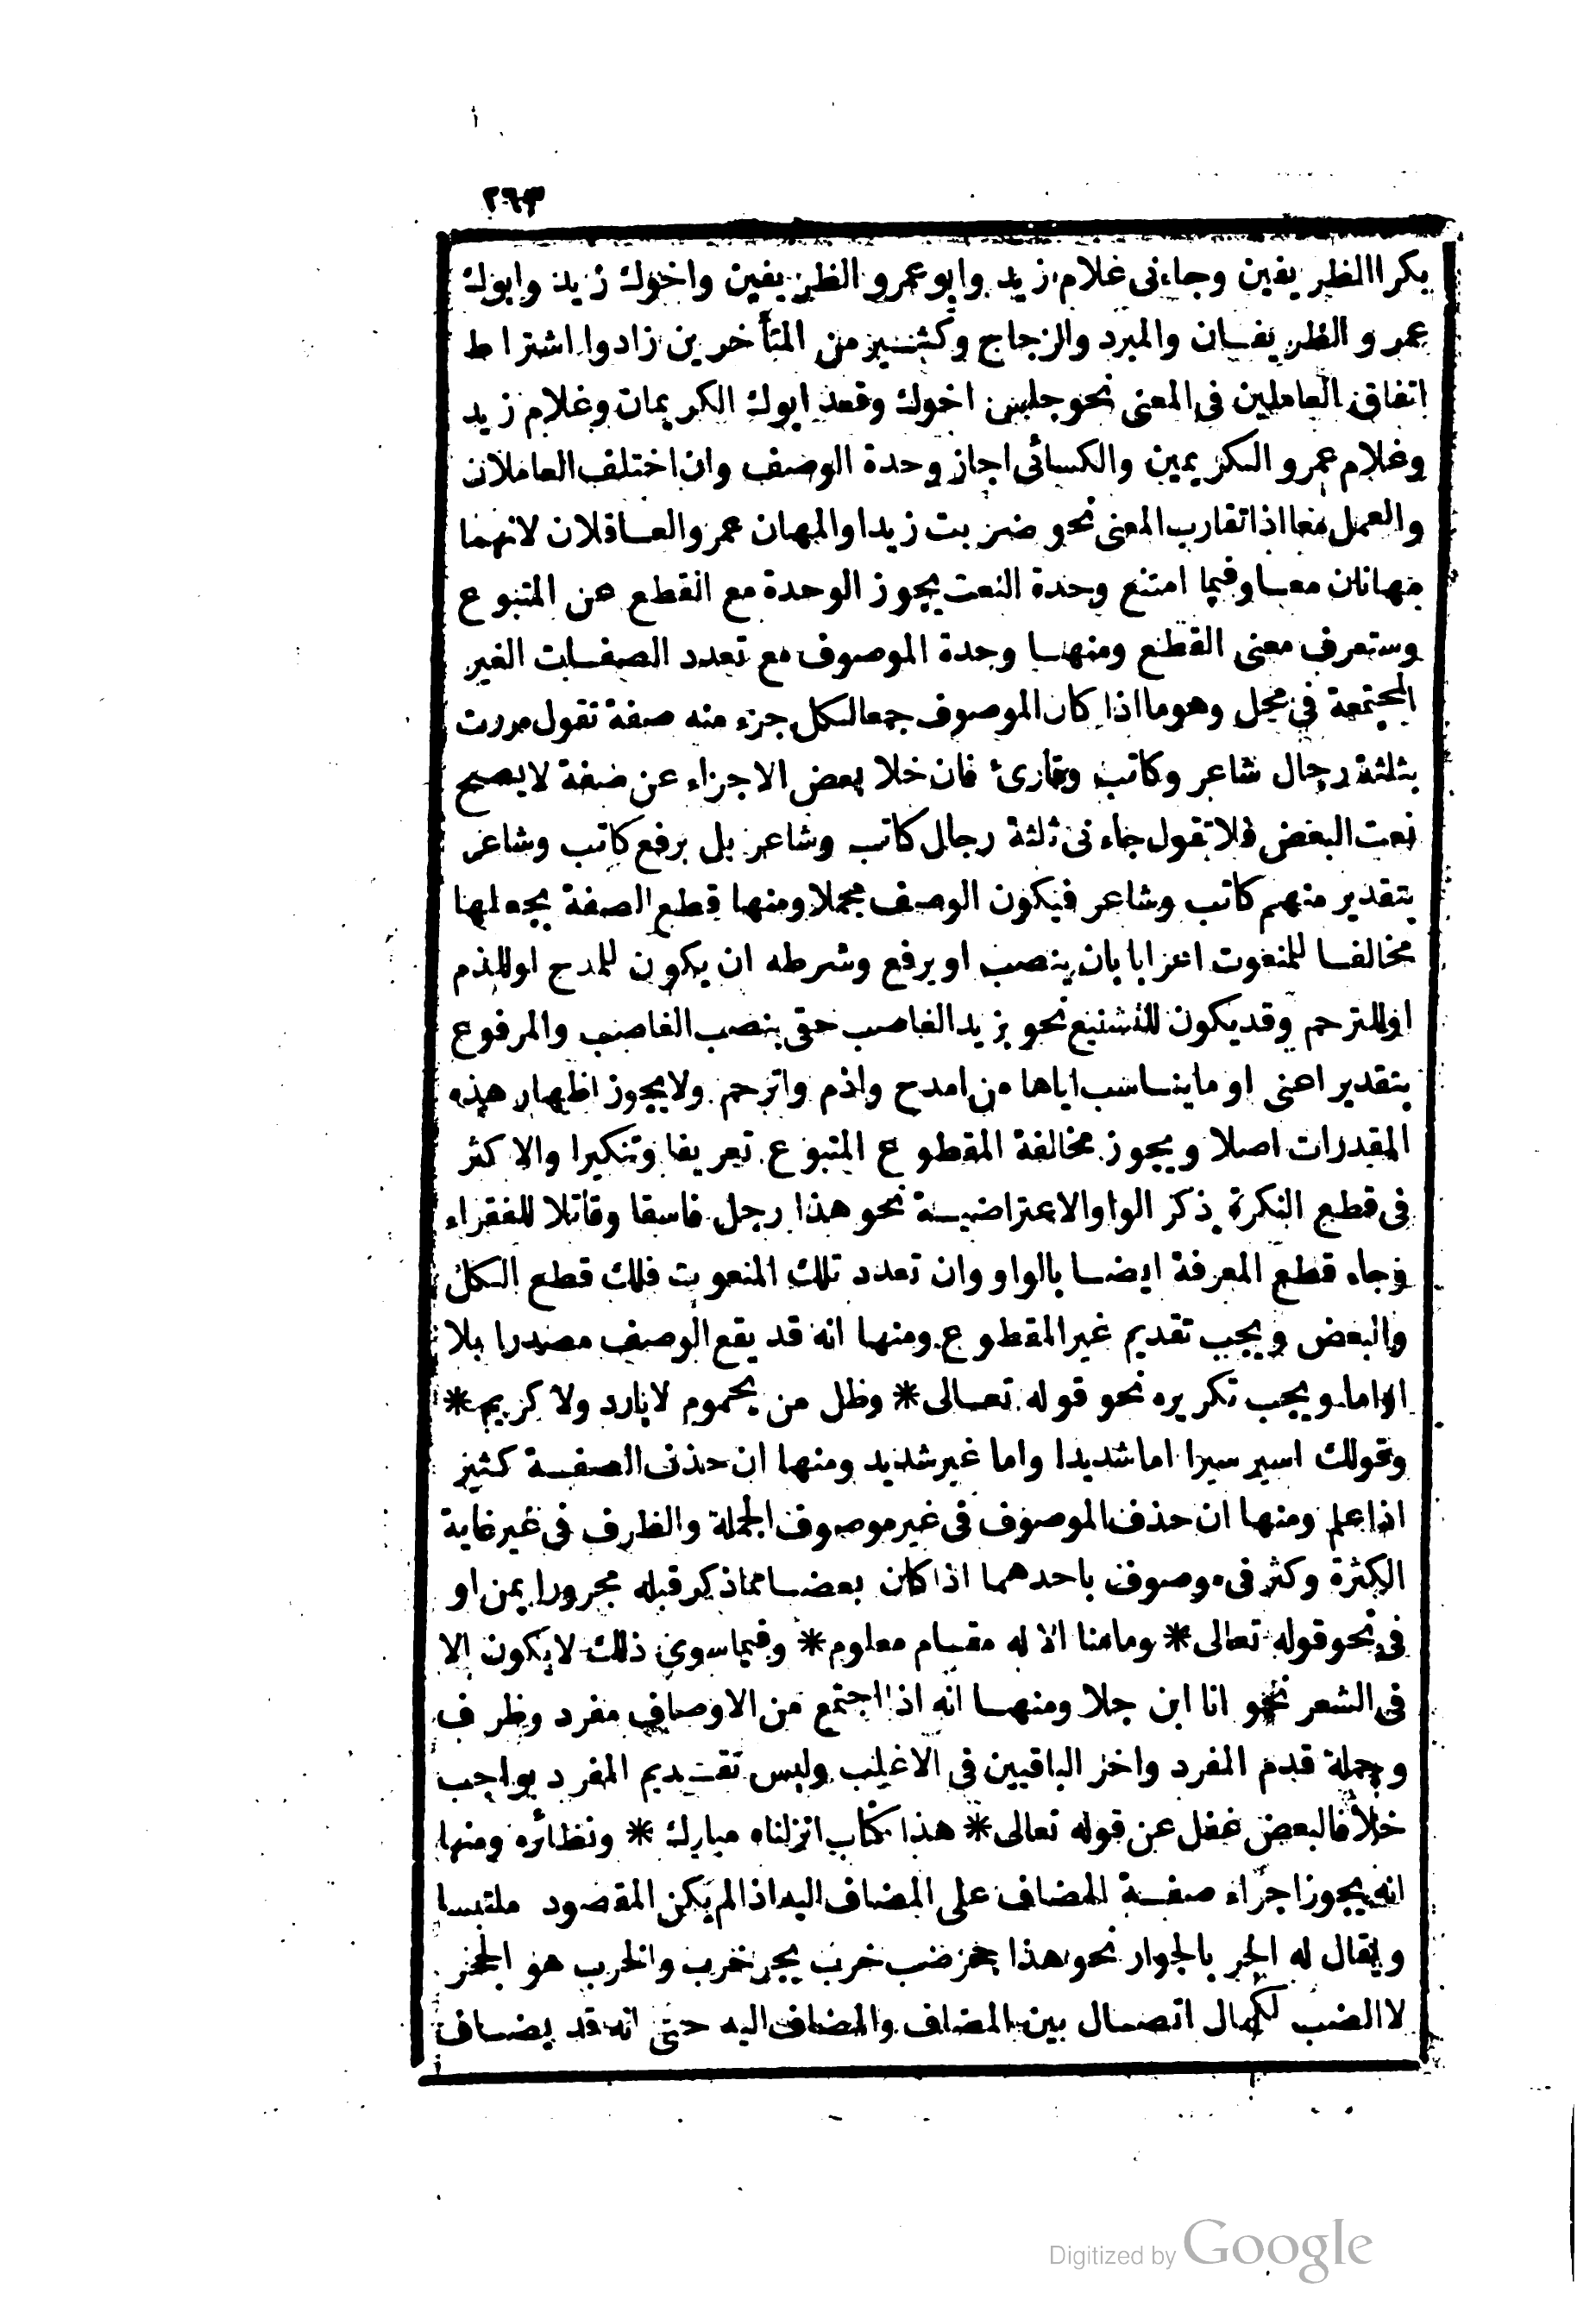 ٢٦٣
بكرا الظريفين وجاءنى غلام زيد وابو عمرو الظريفين واخوك زيد وابوك
عمرو الظريفان والمبرد والزجاج وكثير من المتأخرين زادوا اشتراط
اتفاق العاملين فى المعنى نحو جلس اخوك وقعد ابوك الكريمان وغلام زيد
وغلام عمرو الكريمين والكسائى اجاز وحدة الوصف وان اختلف العاملان
والعمل معا اذا تقارب المعنى نحو ضربت زيدا والمهان عمرو العاقلان لانهما
مهانان معا وفيما امتنع وحدة النعت يجوز الوحدة مع القطع عن المتبوع
وستعرف معنى القطع ومنها وحدة الموصوف مع تعدد الصفات الغير
المجتمعة فى محل وهو ما اذا كان الموصوف جمعا لكل جزء منه صفة تقول مررت
بثلثة رجال شاعر وكاتب وقارئ فان خلا بعض الاجزاء عن صفة لا يصح
نعت البعض فلا تقول جاءنى ثلثة رجال كاتب وشاعر بل برفع كاتب وشاعر
بتقدير منهم كاتب وشاعر فيكون الوصف مجملا ومنها قطع الصفة بجعلها
مخالفا للمنعوت اعرابا بان ينصب او يرفع وشرطه ان يكون للمدح او للذم
او للترحم وقد يكون للتشنيع نحو بزيد الغاصب حقى بنصب الغاصب والمرفوع
بتقدير اعنى او ما يناسب اياها من امدح واذم واترحم ولا يجوز اظهار هذه
المقدرات اصلا ويجوز مخالفة المقطوع المتبوع تعريفا وتنكيرا والاكثر
فى قطع النكرة ذكر الواو الاعتراضية نحو هذا رجل فاسقا وقاتلا للفقراء
وجاء قطع المعرفة ايضا بالواو وان تعدد تلك المنعوت فلك قطع الكل
والبعض ويجب تقديم غير المقطوع ومنها انه قد يقع الوصف مصدرا بلا
او اما ويجب تكريره نحو قوله تعالى * وظل من يحموم لا بارد ولا كريم *
وقولك اسير سيرا اما شديدا واما غير شديد ومنها ان حذف الصفة كثير
اذا علم ومنها ان حذف الموصوف فى غير موصوف الجملة والظرف فى غير غاية
الكثرة وكثر فى موصوف باحدهما اذا كان بعضا مما ذكر قبله مجرورا بمن او
فى نحو قوله تعالى * وما منا الا له مقام معلوم * وفيما سوى ذلك لا يكون الا
فى الشعر نحو انا ابن جلا ومنها انه اذا اجتمع من الاوصاف مفرد وظرف
وجملة قدم المفرد واخر الباقيين فى الاغلب وليس تقديم المفرد بواجب
خلافا لبعض غفل عن قوله تعالى * هذا كتاب انزلناه مبارك * ونظائره ومنها
انه يجوز اجراء صفة المضاف على المضاف اليه اذا لم يكن المقصود ملتبسا
ويقال له الجر بالجوار نحو هذا جحر ضب خرب بجر خرب والخرب هو الجحر
لا الضب لكمال اتصال بين المضاف والمضاف اليه حتى انه قد يضاف
Digitized by Google